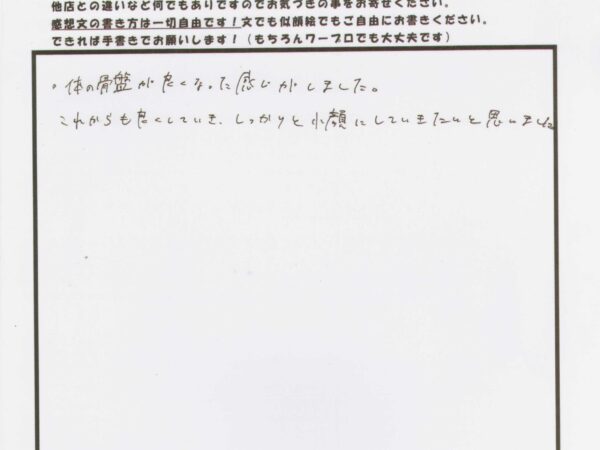 他店との違いなど何でもありですのでお気づきの事をお寄せください。
感想文の書き方は一切自由です！文でも似顔絵でもご自由にお書きください。
できれば手書きでお願いします！（もちろんワープロでも大丈夫です）
・体の骨盤が良くなった感じがしました。
これからも良くしていき、しっかりと小顔にしていきたいと思いました